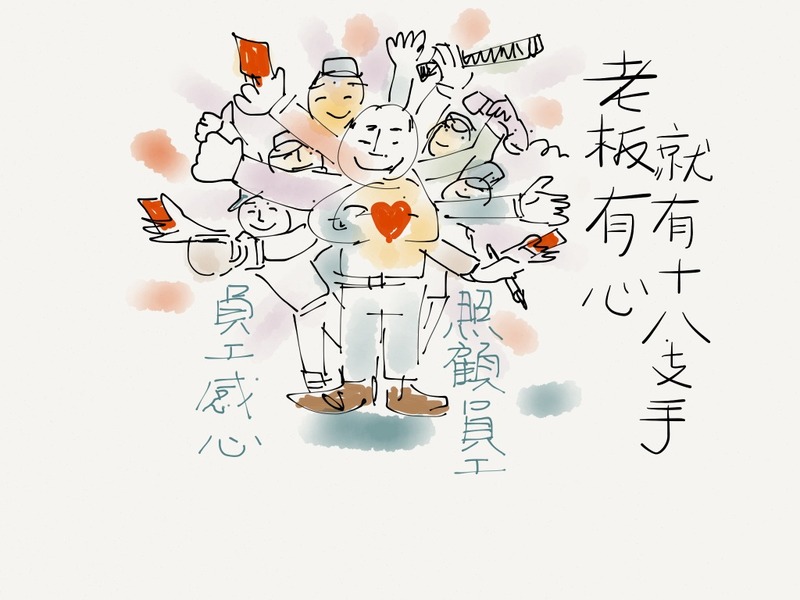 老板有心
就有十八支手
照顧員工
員工感心